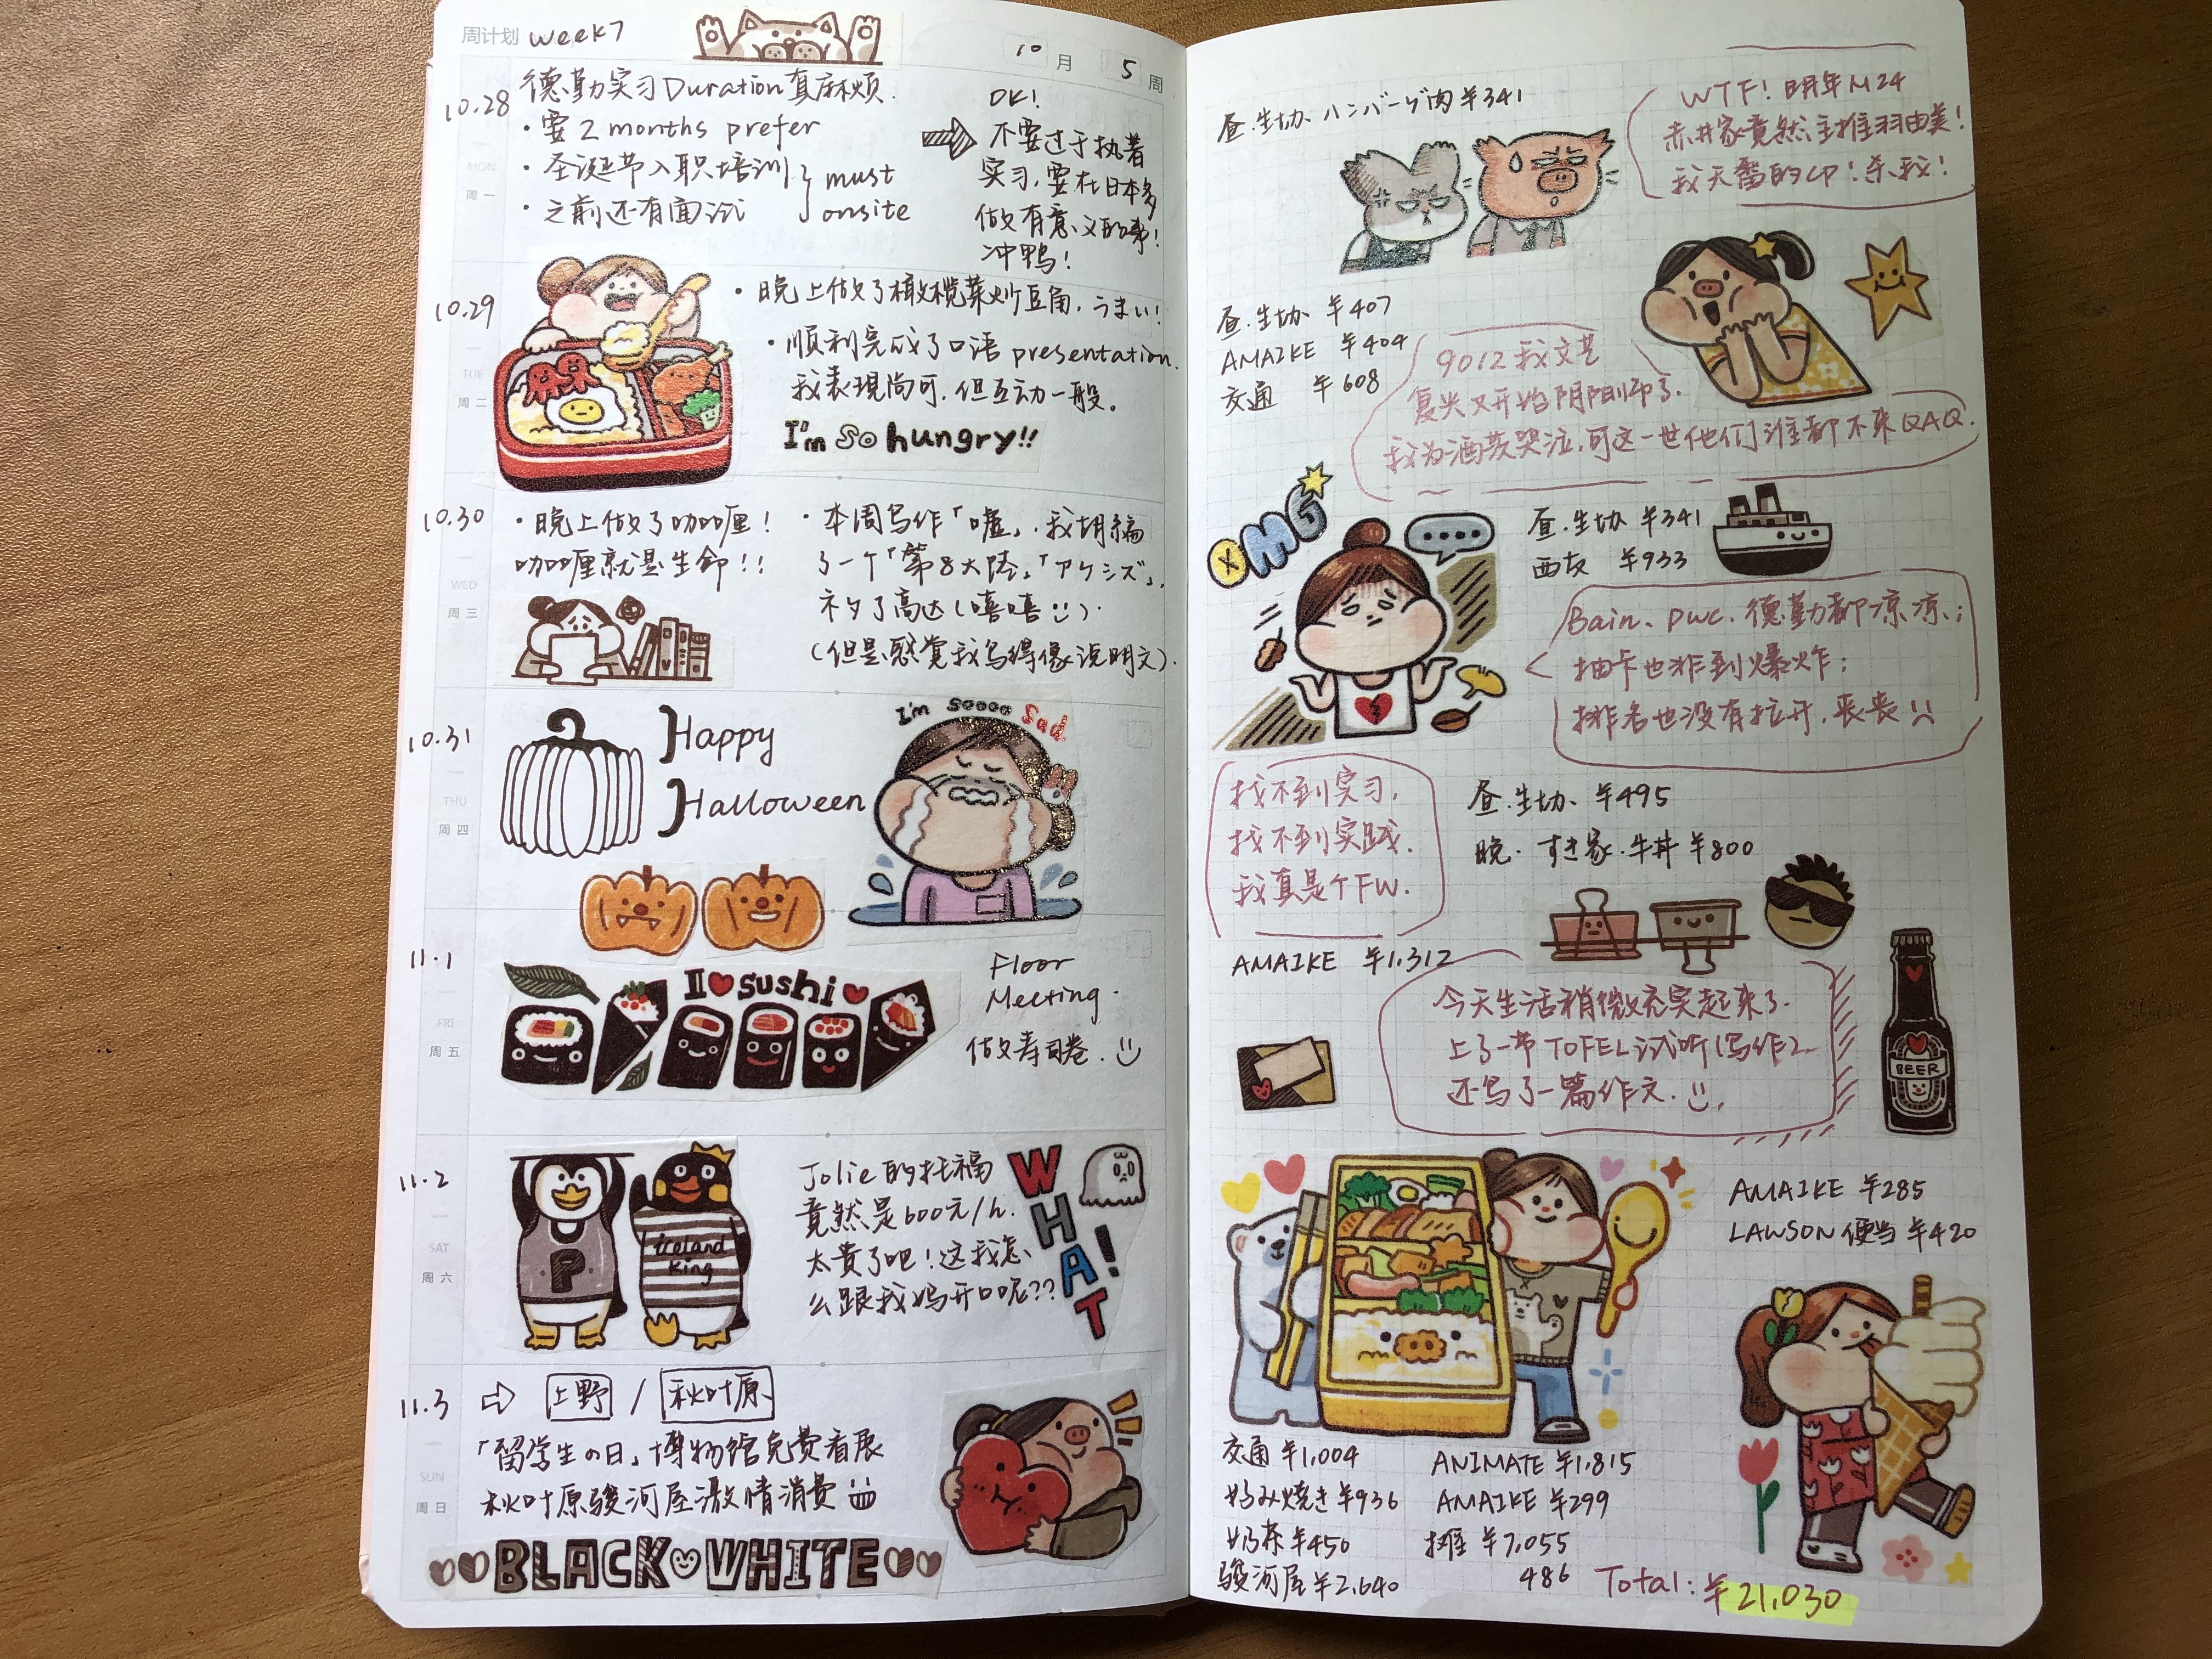 周计划 week7
10 月 5 周
10.28
MON
周一
德勤实习Duration真麻烦.
·要2 months prefer
·圣诞节入职培训 } must
·之前还有面试 onsite
OK!
不要过于执着
实习,要在日本多
做有意义的事!
冲鸭!
10.29
TUE
周二
·晚上做了橄榄菜炒豆角,うまい!
·顺利完成了口语presentation.
我表现尚可,但互动一般。
I'm So hungry!!
10.30
WED
周三
·晚上做了咖喱!
咖喱就是生命!!
·本周写作「嘘」,我胡编
了一个「第8大陸」「アケシズ」,
ネタ了高达(嘻嘻).
(但是感觉我写得像说明文).
10.31
THU
周四
Happy
Halloween
I'm soooo Sad
11.1
FRI
周五
I sushi
Floor
Meeting.
做寿司卷.
11.2
SAT
周六
P
iceland
King
Jolie的托福
竟然是600元/h.
太贵了吧!这我怎
么跟我妈开口呢??
WHAT!
11.3
SUN
周日
⇨ 上野 / 秋叶原
「留学生の日」博物馆免费看展
秋叶原骏河屋激情消费
BLACK WHITE
昼.生协.ハンバーグ肉 ¥341
WTF!明年M24
赤井家竟然主推羽由美!
我天雷的CP!杀我!
昼.生协 ¥407
AMAIKE ¥404
交通 ¥608
9012我文艺
复兴又开始阴阳师了.
我为酒茨哭泣,可这一世他们谁都不来QAQ.
OMG
昼.生协 ¥341
西友 ¥933
Bain、pwc、德勤都凉凉;
抽卡也非到爆炸;
排名也没有拉开,丧丧
找不到实习,
找不到实践.
我真是个FW.
昼.生协. ¥495
晚.すき家.牛丼 ¥800
AMAIKE ¥1,312
今天生活稍微充实起来了.
上了一节TOFEL试听(写作),
还写了一篇作文.
BEER
AMAIKE ¥285
LAWSON便当 ¥420
交通 ¥1,004
好み焼き ¥936
奶茶 ¥450
骏河屋 ¥2,640
ANIMATE ¥1,815
AMAIKE ¥299
摊 ¥7,055
486
Total: ¥21,030